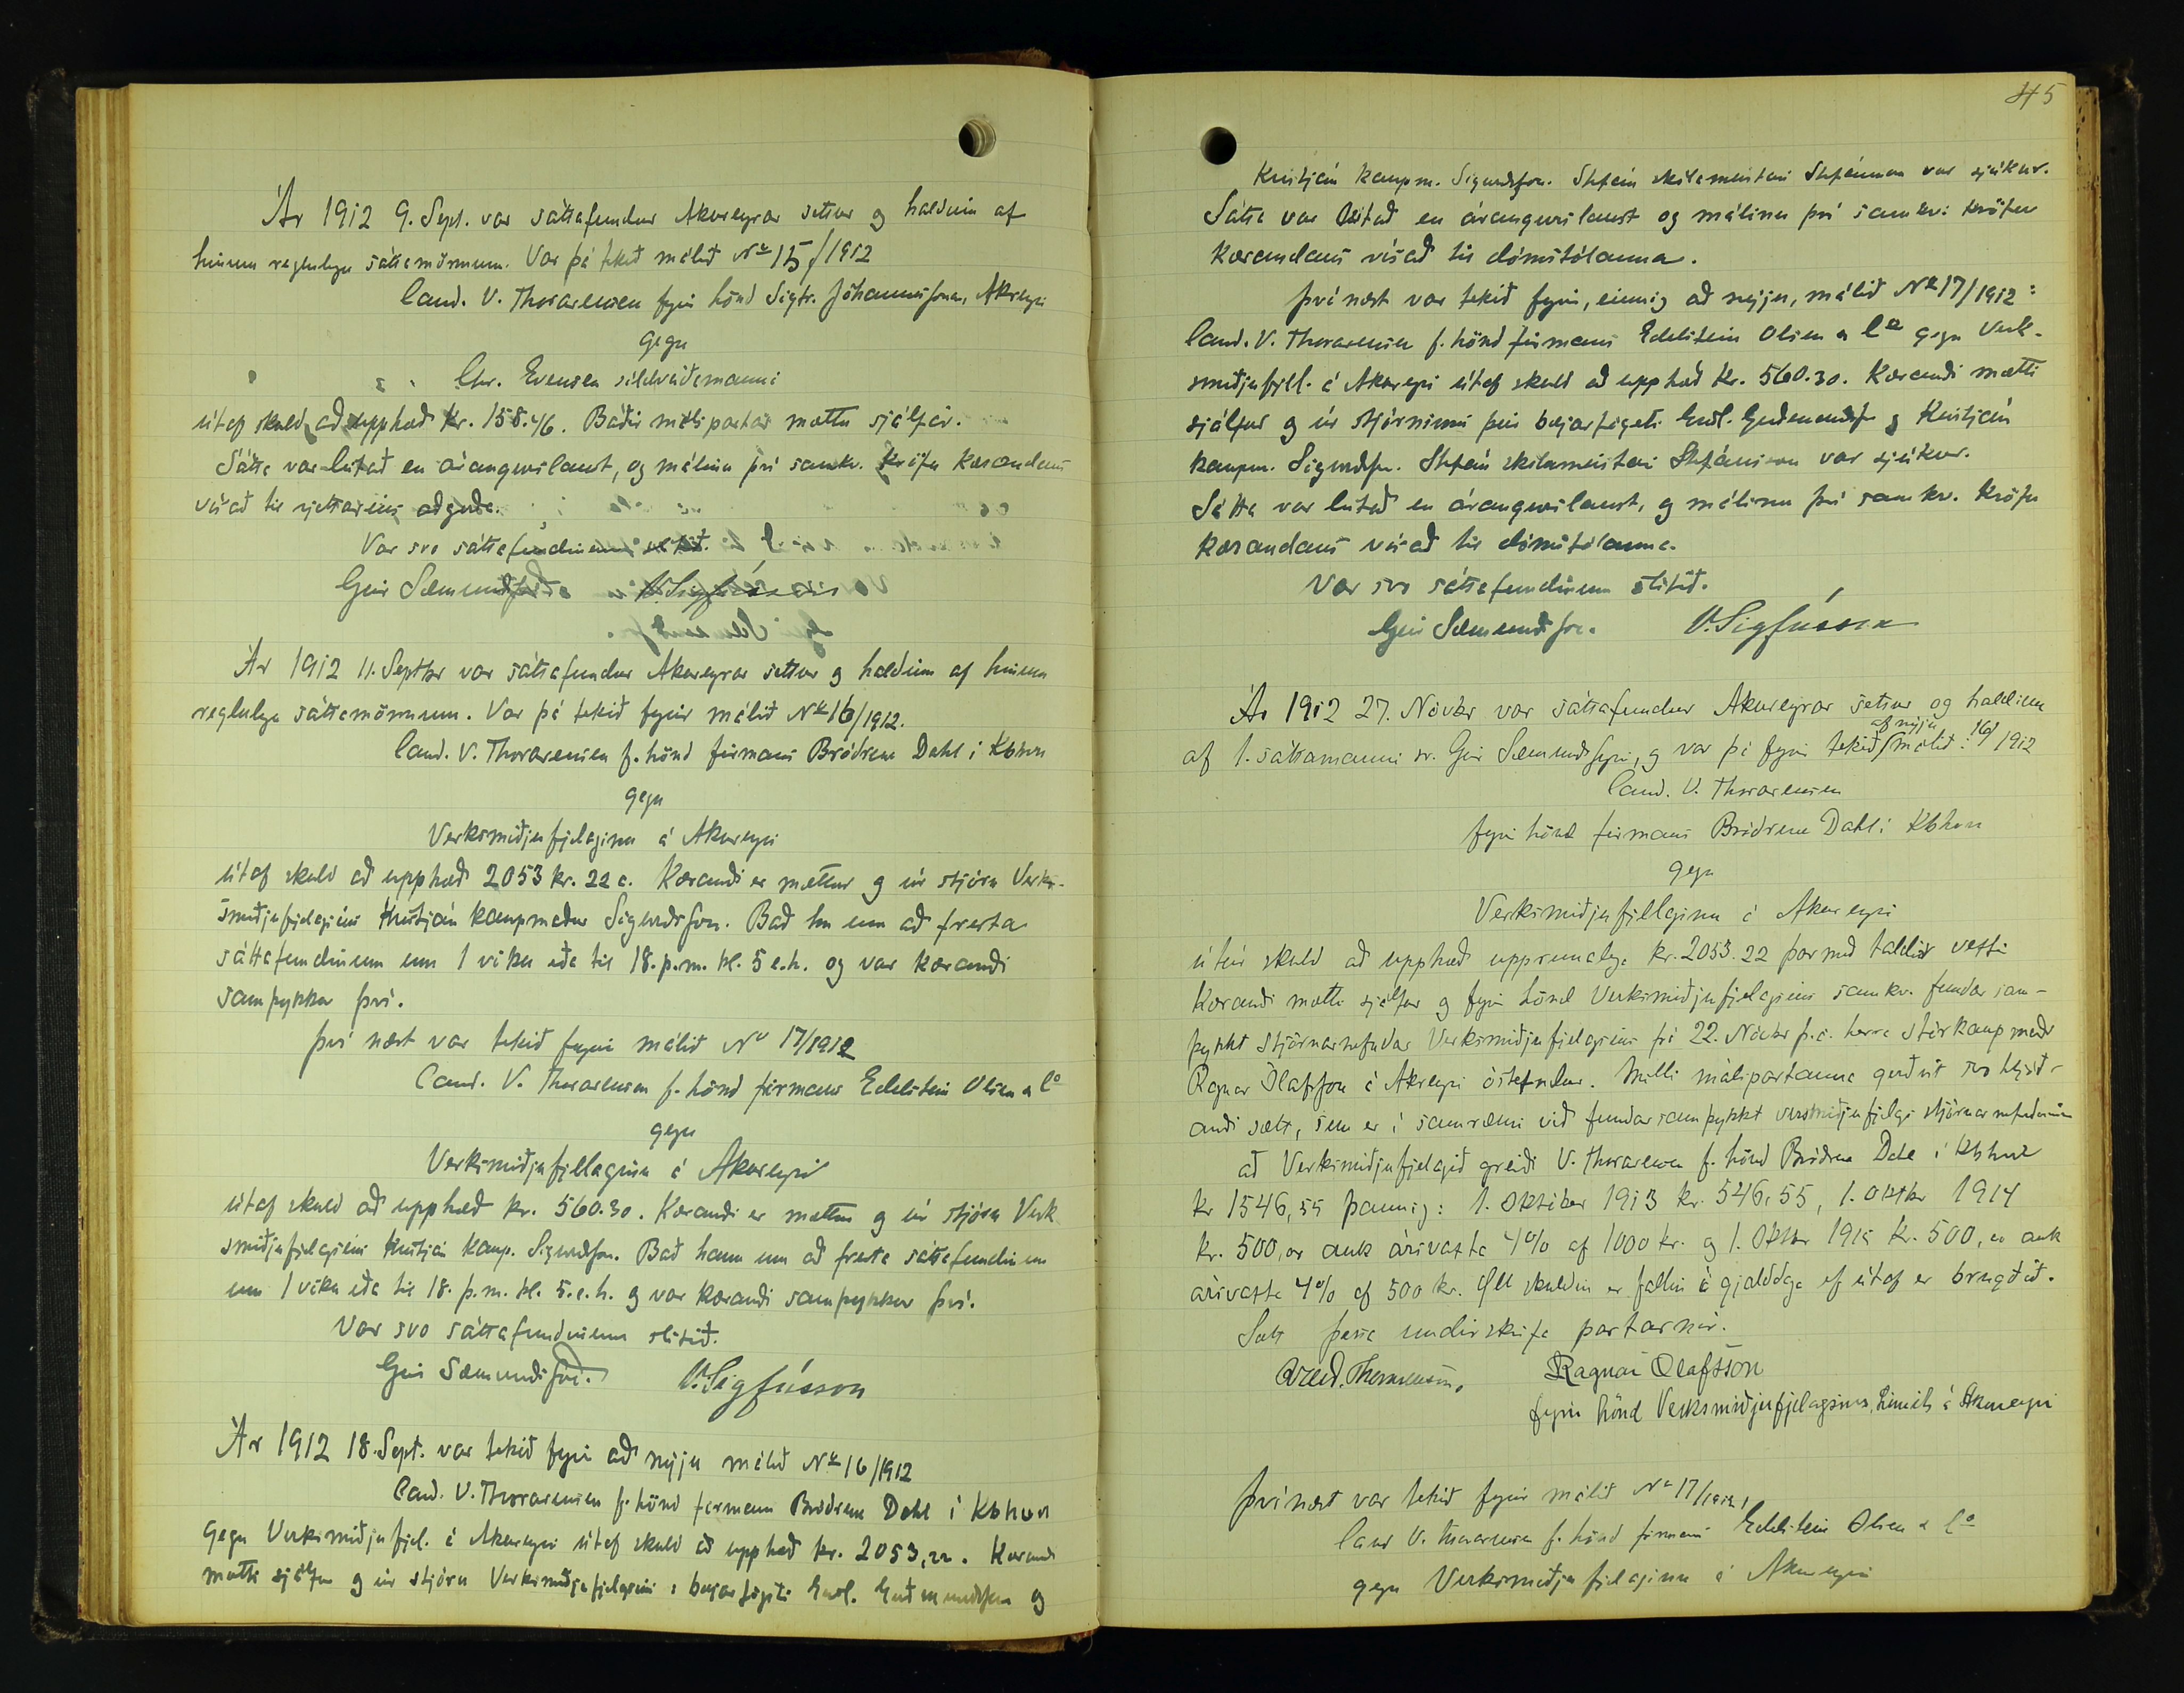 Ár 1912 9. Sept. var sáttafundur Akureyrar settur og haldinn af
hinum reglulegu sáttamönnum. Var þá tekið málið No 15/1912
Cand. V. Thorarensen fyrir hönd Sigtr. Jóhannessonar, Akureyri
gegn
Chr. Evensen síldveiðamanni
útaf skuld að upphæð kr. 158.46. Báðir málspartar mættu sjálfir.
Sátta var leitað en árangurslaust, og málinu því samkv. kröfu kærandans
vísað til rjettarins aðgerða.
Var svo sáttafundinum slitið.
Geir Sæmundsson V. Sigfússon
Ár 1912 11. Septbr var sáttafundur Akureyrar settur og haldinn af hinum
reglulegu sáttamönnum. Var þá tekið fyrir málið No 16/1912.
Cand. V. Thorarensen f. hönd firmans Brödrene Dahl í Kbhvn
gegn
Verksmiðjufjelaginu á Akureyri
útaf skuld að upphæð 2053 kr. 22 a. Kærandi er mættur og úr stjórn Verk-
smiðjufjelagsins Kristján kaupmaður Sigurðsson. Bað hann um að fresta
sáttafundinum um 1 viku eða til 18. þ.m. kl. 5 e.h. og var kærandi
samþykkur því.
Því næst var tekið fyrir málið No 17/1912
Cand. V. Thorarensen f. hönd firmans Edelstein Olsen & Co
gegn
Verksmiðjufjelaginu á Akureyri
útaf skuld að upphæð kr. 560.30. Kærandi er mættur og úr stjórn Verk
smiðjufjelagsins Kristján kaup. Sigurðsson. Bað hann um að fresta sáttafundinum
um 1 viku eða til 18. þ.m. kl. 5. e.h. og var kærandi samþykkur því.
Var svo sáttafundinum slitið.
Geir Sæmundsson. V. Sigfússon
Ár 1912 18. Sept. var tekið fyrir að nýju málið No 16/1912
Cand. V. Thorarensen f. hönd firmans Brödrene Dahl í Kbhvn
gegn Verksmiðjufjel. á Akureyri útaf skuld að upphæð kr. 2053,22. Kærandi
mætti sjálfur og úr stjórn Verksmiðjufjelagsins: bæjarfógeti Guðl. Guðmundsson og
45
Kristján kaupm. Sigurðsson. Stefán skólameistari Stefánsson var sjúkur.
Sátta var leitað en árangurslaust og málinu því samkv. kröfu
kærandans vísað til dómstólanna.
Því næst var tekið fyrir, einnig að nýju, málið No 17/1912:
Cand. V. Thorarensen f. hönd firmans Edelstein Olsen & Co gegn Verk-
smiðjufjel. á Akureyri útaf skuld að upphæð kr. 560.30. Kærandi mætti
sjálfur og úr stjórninni þeir bæjarfógeti Guðl. Guðmundsson og Kristján
kaupm. Sigurðsson. Stefán skólameistari Stefánsson var sjúkur.
Sátta var leitað en árangurslaust, og málinu því samkv. kröfu
kærandans vísað til dómstólanna.
Var svo sáttafundinum slitið.
Geir Sæmundsson. V. Sigfússon
Ár 1912 27. Nóvbr var sáttafundur Akureyrar settur og haldinn
af 1. sáttamanni sr. Geir Sæmundssyni, og var þá fyrir tekið af nýju málið: 16/1912
Cand. V. Thorarensen
fyrir hönd firmans Brödrene Dahl í Kbhvn
gegn
Verksmiðjufjelaginu á Akureyri
útúr skuld að upphæð upprunalega kr. 2053.22 þar með taldir vextir
Kærandi mætti sjálfur og fyrir hönd Verksmiðjufjelagsins samkv. fundar sam-
þykkt stjórnarnefndar Verksmiðjufjelagsins frá 22. Nóvbr þ.á. herra stórkaupmaðr
Ragnar Ólafsson á Akureyri óstefndur. Milli málspartanna gerðist svo hljóð-
andi sætt, sem er í samræmi við fundarsamþykkt verksmiðjufjelags stjórnarnefndarinnar
að Verksmiðjufjelagið greiði V. Thorarensen f. hönd Brödrene Dahl í Kbhvn
kr 1546,55 þannig: 1. Október 1913 kr. 546,55, 1. Oktbr 1914
kr. 500, og auk ársvaxta 4% af 1000 kr. og 1. Oktbr 1915 kr. 500, og auk
ársvaxta 4% af 500 kr. Öll skuldin er fallin í gjalddaga ef útaf er brugðið.
Sætt þessa undirskrifa partarnir.
V. Thorarensen. Ragnar Ólafsson
fyrir hönd Verksmiðjufjelagsins, Limit's á Akureyri
Því næst var tekið fyrir málið No 17/1912:
Cand V. Thorarensen f. hönd firmans Edelstein Olsen & Co
gegn Verksmiðjufjelaginu á Akureyri